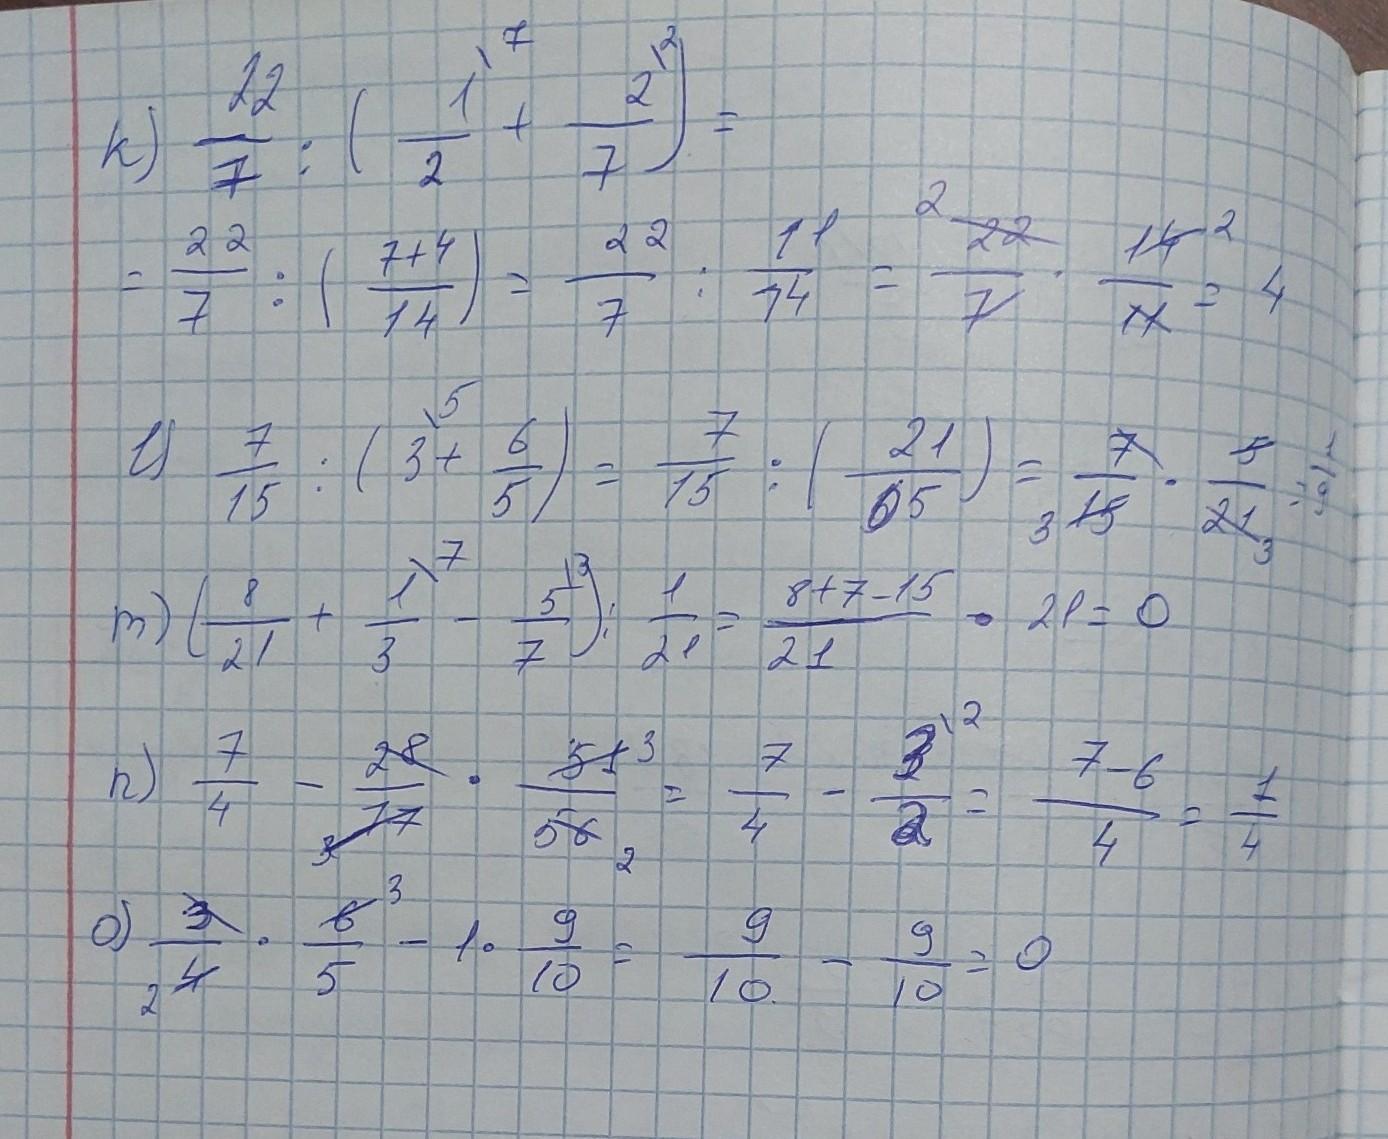 k) 22/7 : ( 1\7/2 + 2\2/7 ) =
= 22/7 : ( 7+4/14 ) = 22/7 : 11/14 = 2 22/7 · 14 2/11 = 4
l) 7/15 : ( 3\5 + 6/5 ) = 7/15 : ( 21/5 ) = 7/3 15 · 5/21 3 = 1/9
m) ( 8/21 + 1\7/3 - 5\3/7 ) : 1/21 = 8+7-15/21 · 21 = 0
n) 7/4 - 28/3 77 · 3/2 = 7/4 - 3\2/2 = 7-6/4 = 1/4
o) 3/2 4 · 6 3/5 - 1 · 9/10 = 9/10 - 9/10 = 0